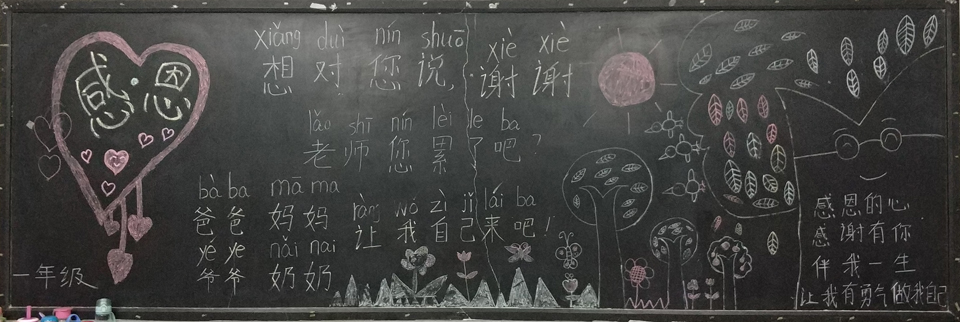 感·恩
xiǎng duì nín shuō xiè xiè
想对您说,谢谢
lǎo shī nín lèi le ba
老师您累了吧?
bà ba mā ma
爸爸 妈妈
ràng wǒ zì jǐ lái ba
让我自己来吧!
yé ye nǎi nai
爷爷 奶奶
一年级
感恩的心
感谢有你
伴我一生
让我有勇气做我自己